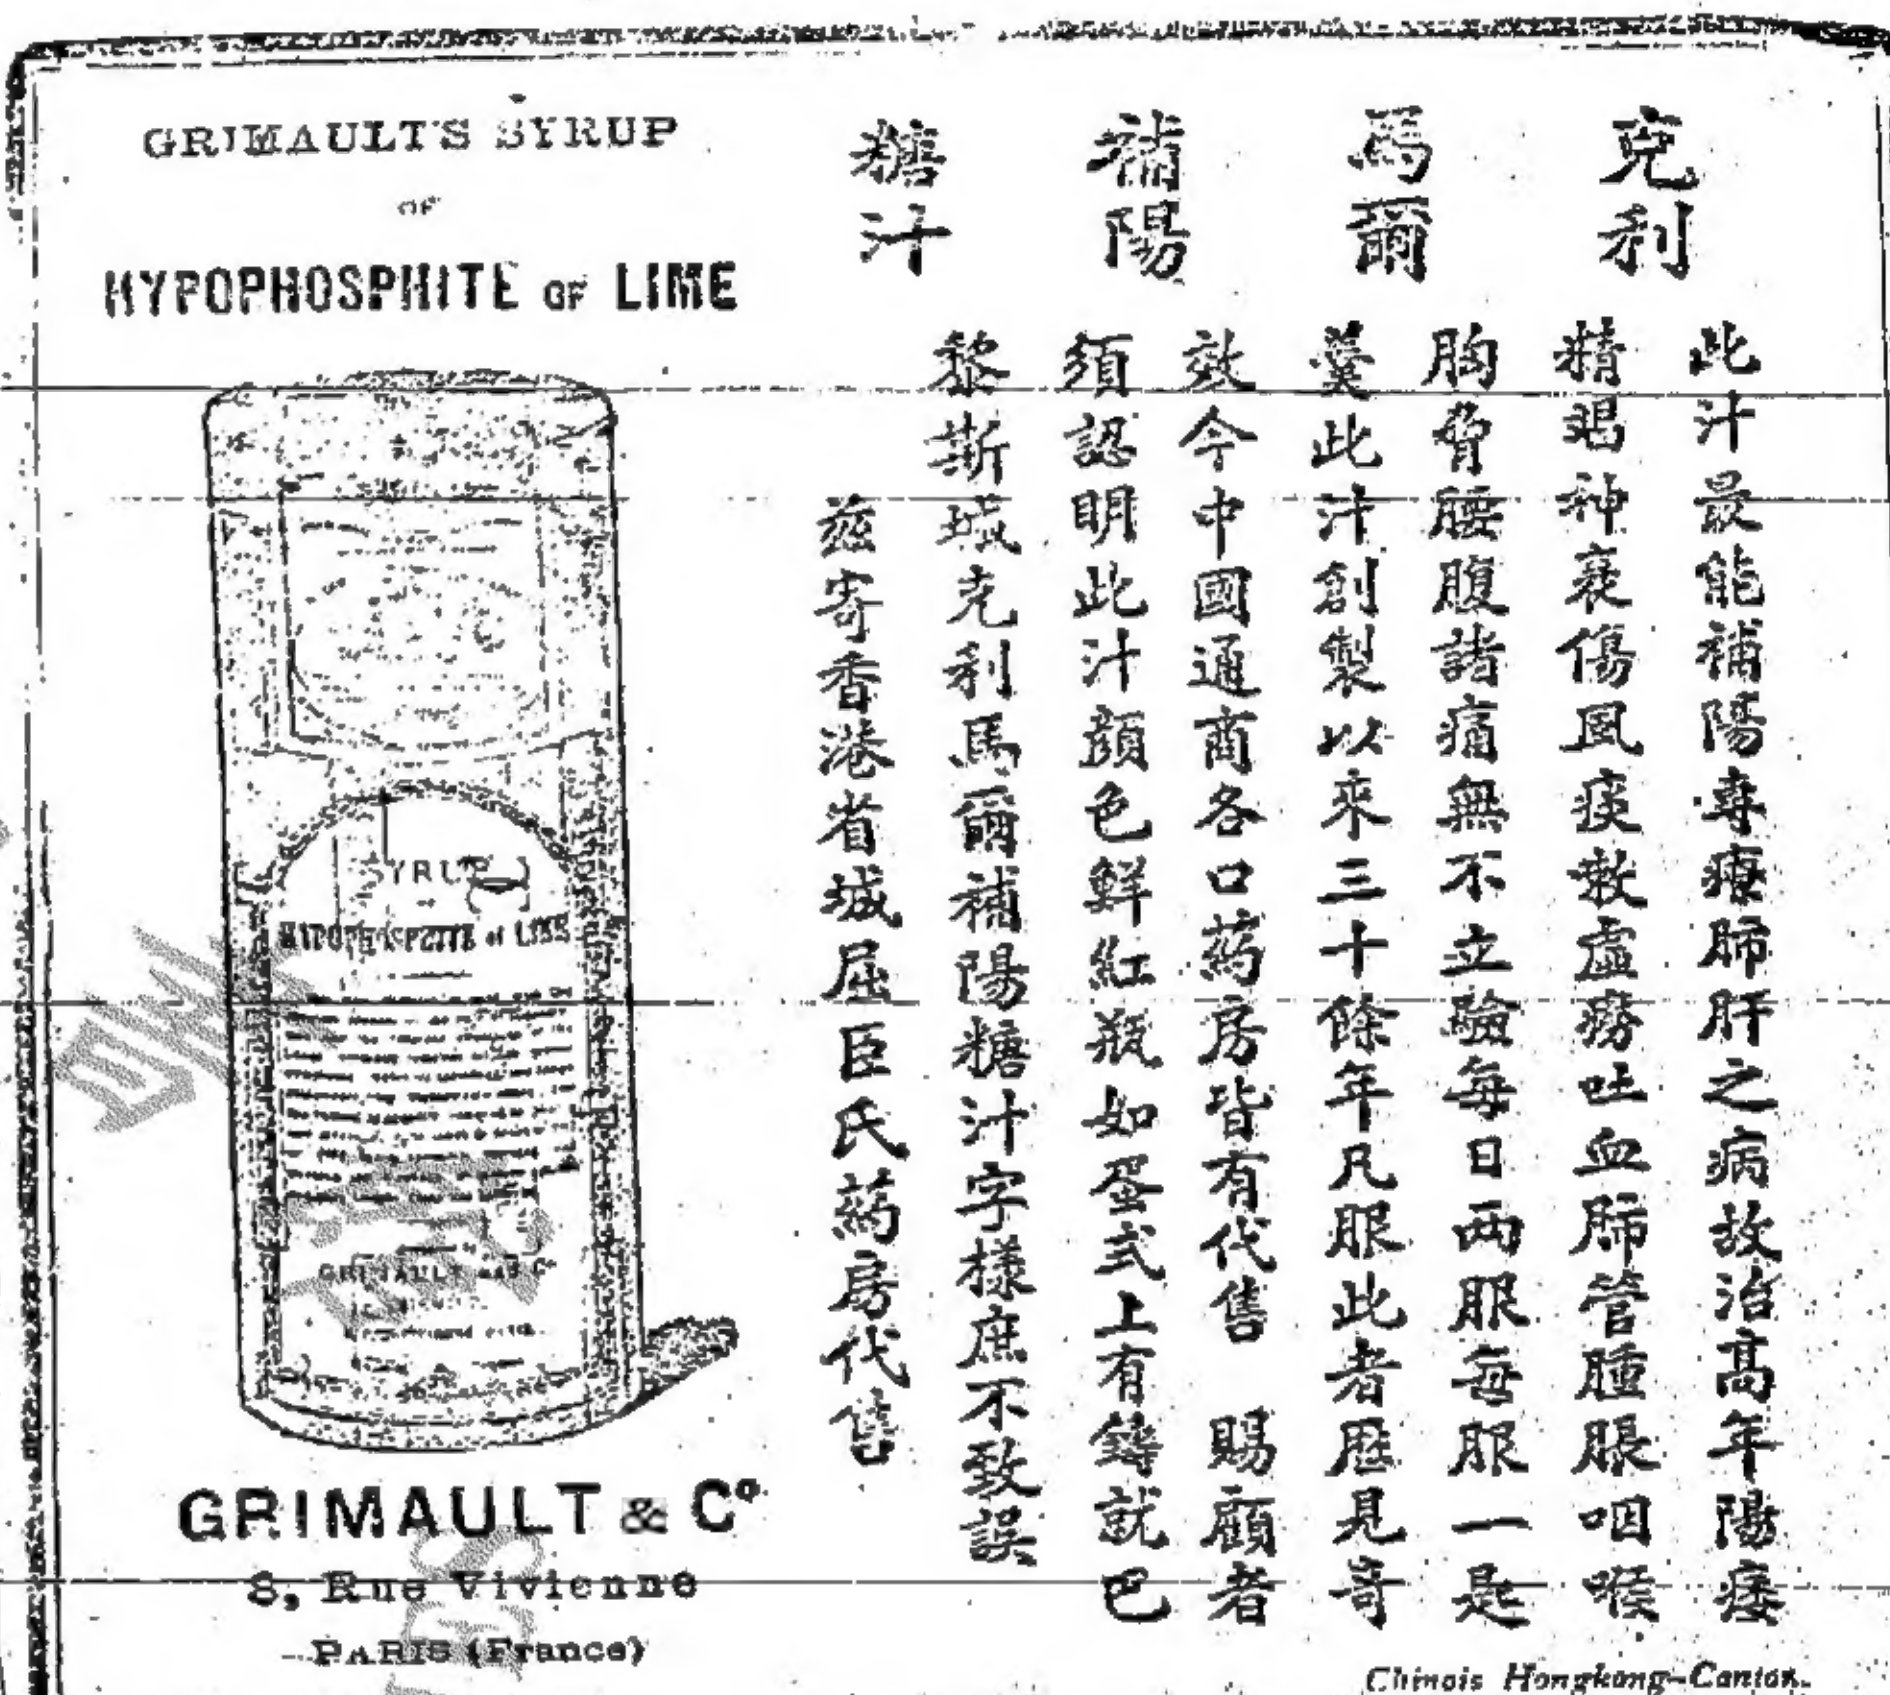 GRIMAULT'S SYRUP
OF
HYPOPHOSPHITE OF LIME
SYRUP
HYPOPHOSPHITE of LIME
GRIMAULT AND Co
GRIMAULT & Co
8, Rue Vivienne
PARIS (France)
克利
馬爾
補陽
糖汁
此汁最能補陽專療肺肝之病故治高年陽痿
精竭神衰傷風痰嗽虛癆吐血肺管腫脹咽喉
胸脅腰腹諸痛無不立驗每日两服每服一匙
羹此汁創製以來三十餘年凡服此者歷見奇
效今中國通商各口葯房皆有代售 賜顧者
須認明此汁顔色鮮紅瓶如蛋式上有鑄就巴
黎斯城克利馬爾補陽糖汁字樣庶不致誤
茲寄香港省城屈臣氏葯房代售
Chinois Hongkong-Canton.